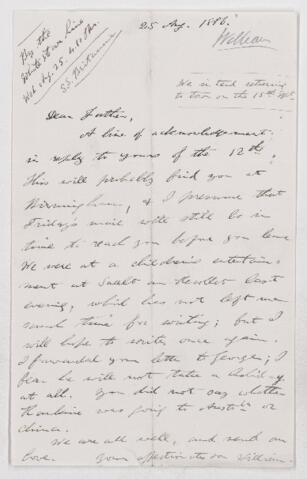 25 Aug. 1886.
William
By the
White Star Line
Wed. Aug. 25. 4.30 P.M.
S.S. Britannic
We intend returning
to town on the 15th
Dear Father,
A line of acknowledgement
in reply to yours of the 12th.
This will probably find you at
Birmingham, & I presume that
Friday's mail will still be in
time to reach you before you leave
We were at a children's entertain
ment at Sault au Recollet last
evening, which has not left me
much time for writing; but I
will hope to write once again.
I forwarded your letter to George; I
fear he will not take a holiday
at all. You did not say whether
was going to or
China.
We are all well, and send our
love. Your affectionate son William.